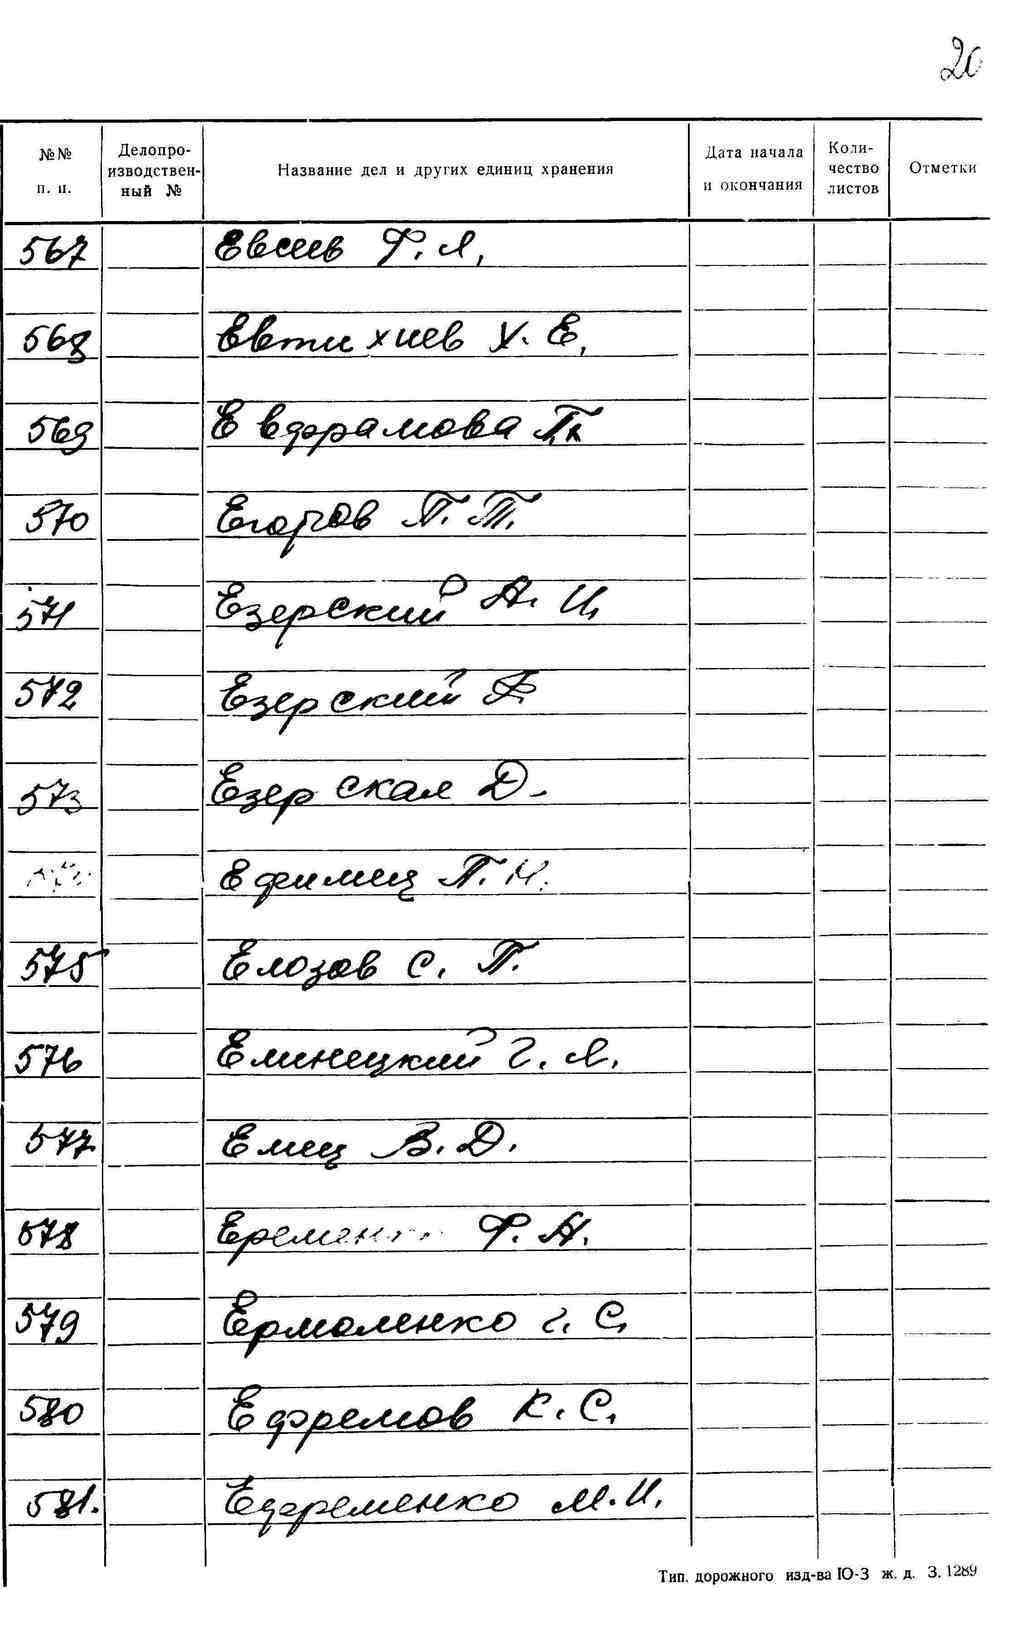 20
№№ п. п. Делопроизводственный № Название дел и других единиц хранения Дата начала и окончания Количество листов Отметки
567 Евсеев Ф. Я.
568 Евтихиев Х. Е.
569 Евфрамова
570 Егоров П. Т.
571 Езерский А. И.
572 Езерский
573 Езерская Д.
Ефимец П. Н.
575 Елозов С. П.
576 Елинецкий Г. Я.
577 Емец В. Д.
578 Еременко Ф. А.
579 Ермоленко Г. С.
580 Ефремов К. С.
581. Ефременко М. И.
Тип. дорожного изд-ва Ю-З ж. д. З. 1289